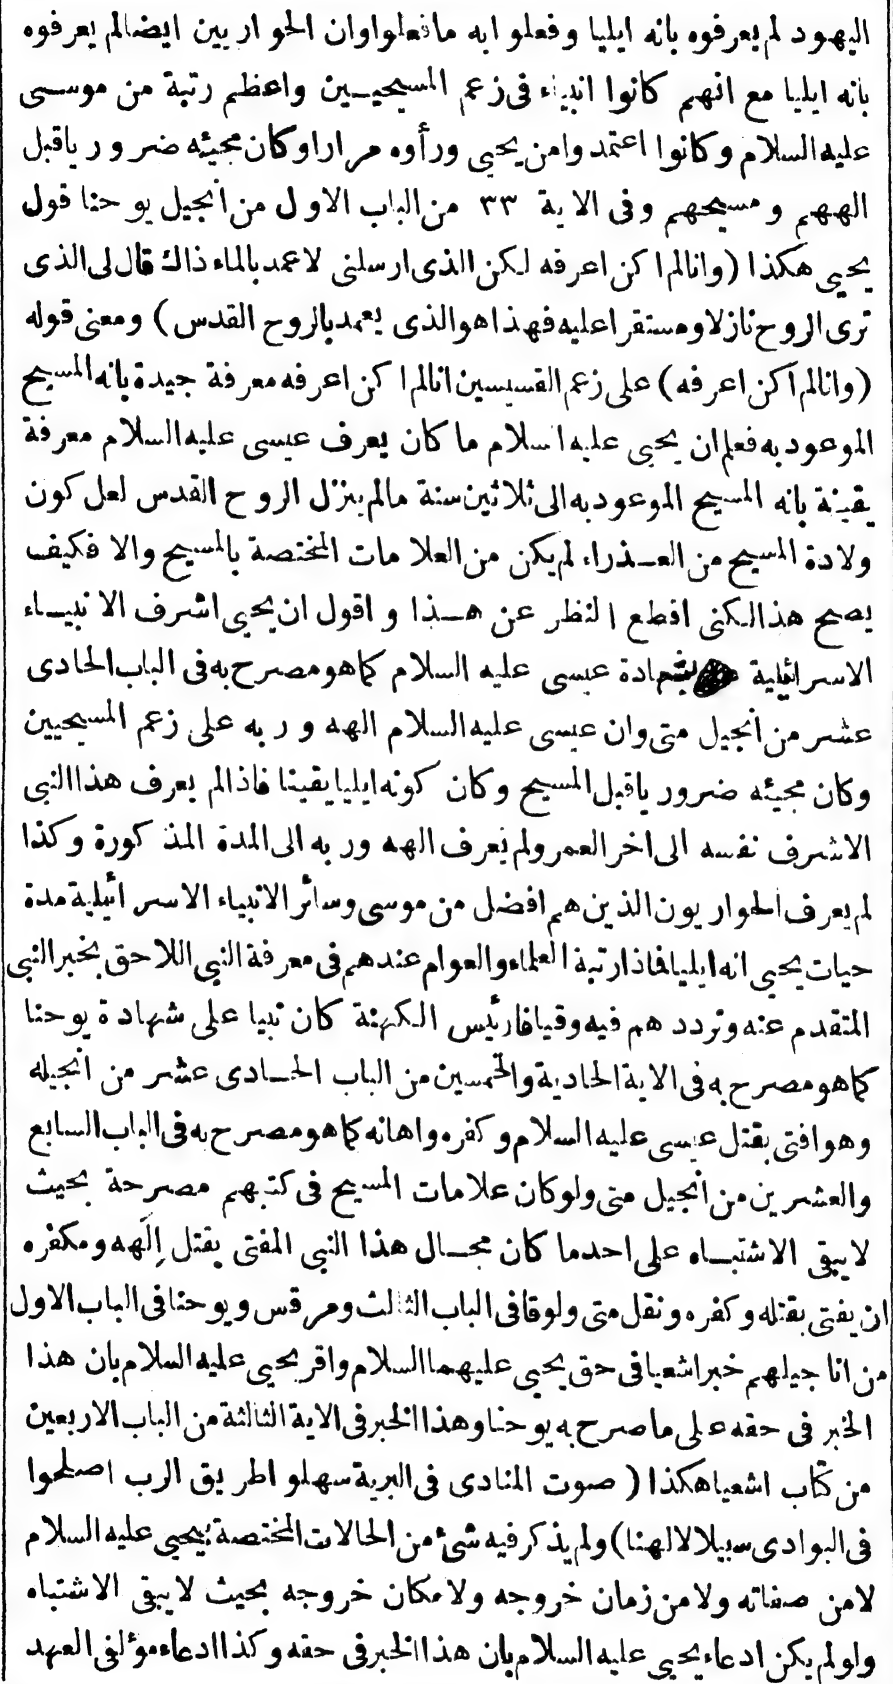 اليهود لم يعرفوه بانه ايليا وفعلوا به مافعلوا وان الحواريين ايضا لم يعرفوه
بانه ايليا مع انهم كانوا انبياء فى زعم المسيحيين واعظم رتبة من موسى
عليه السلام وكانوا اعتمدوا من يحيى ورأوه مرارا وكان مجيئه ضروريا قبل
الههم ومسيحهم وفى الاية ٣٣ من الباب الاول من انجيل يوحنا قول
يحيى هكذا (وانا لم اكن اعرفه لكن الذى ارسلنى لاعمد بالماء ذاك قال لى الذى
ترى الروح نازلا ومستقرا عليه فهذا هو الذى يعمد بالروح القدس) ومعنى قوله
(وانا لم اكن اعرفه) على زعم القسيسين انا لم اكن اعرفه معرفة جيدة بانه المسيح
الموعود به فعلم ان يحيى عليه السلام ما كان يعرف عيسى عليه السلام معرفة
يقينة بانه المسيح الموعود به الى ثلاثين سنة مالم ينزل الروح القدس لعل كون
ولادة المسيح من العذراء لم يكن من العلامات المختصة بالمسيح والا فكيف
يصح هذا لكنى اقطع النظر عن هذا واقول ان يحيى اشرف الانبياء
الاسرائيلية بشهادة عيسى عليه السلام كما هو مصرح به فى الباب الحادى
عشر من انجيل متى وان عيسى عليه السلام الهه وربه على زعم المسيحيين
وكان مجيئه ضروريا قبل المسيح وكان كونه ايليا يقينا فاذا لم يعرف هذا النبى
الاشرف نفسه الى اخر العمر ولم يعرف الهه وربه الى المدة المذكورة وكذا
لم يعرف الحواريون الذين هم افضل من موسى وسائر الانبياء الاسرائيلية مدة
حيات يحيى انه ايليا فماذا رتبة العلماء والعوام عندهم فى معرفة النبى اللاحق بخبر النبى
المتقدم عنه وتردد هم فيه وقيافا رئيس الكهنة كان نبيا على شهادة يوحنا
كما هو مصرح به فى الاية الحادية والخمسين من الباب الحادى عشر من انجيله
وهو افتى بقتل عيسى عليه السلام وكفره واهانه كما هو مصرح به فى الباب السابع
والعشرين من انجيل متى ولو كان علامات المسيح فى كتبهم مصرحة بحيث
لا يبقى الاشتباه على احد ما كان مجال هذا النبى المفتى بقتل إلٓهه ومكفره
ان يفتى بقتله وكفره ونقل متى ولوقا فى الباب الثالث ومرقس ويوحنا فى الباب الاول
من اناجيلهم خبر اشعيا فى حق يحيى عليهما السلام واقر يحيى عليه السلام بان هذا
الخبر فى حقه على ما صرح به يوحنا وهذا الخبر فى الاية الثالثة من الباب الاربعين
من كتاب اشعيا هكذا (صوت المنادى فى البرية سهلوا طريق الرب اصلحوا
فى البوادى سبيلا لالهنا) ولم يذكر فيه شئ من الحالات المختصة بيحيى عليه السلام
لا من صفاته ولا من زمان خروجه ولا مكان خروجه بحيث لا يبقى الاشتباه
ولو لم يكن ادعاء يحيى عليه السلام بان هذا الخبر فى حقه وكذا ادعاء مؤلفى العهد